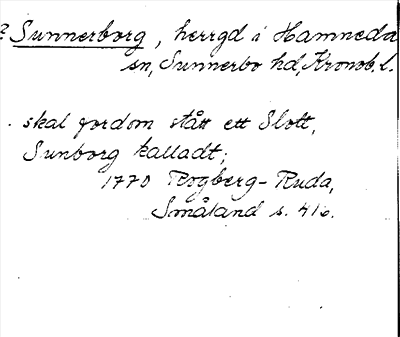 ? Sunnerborg, herrgd i Hamneda
sn, Sunnerbo hd, Kronob. l.
skal fordom stått ett Slott,
Sunborg kalladt;
1770 Rogberg-Ruda,
Småland s. 416.